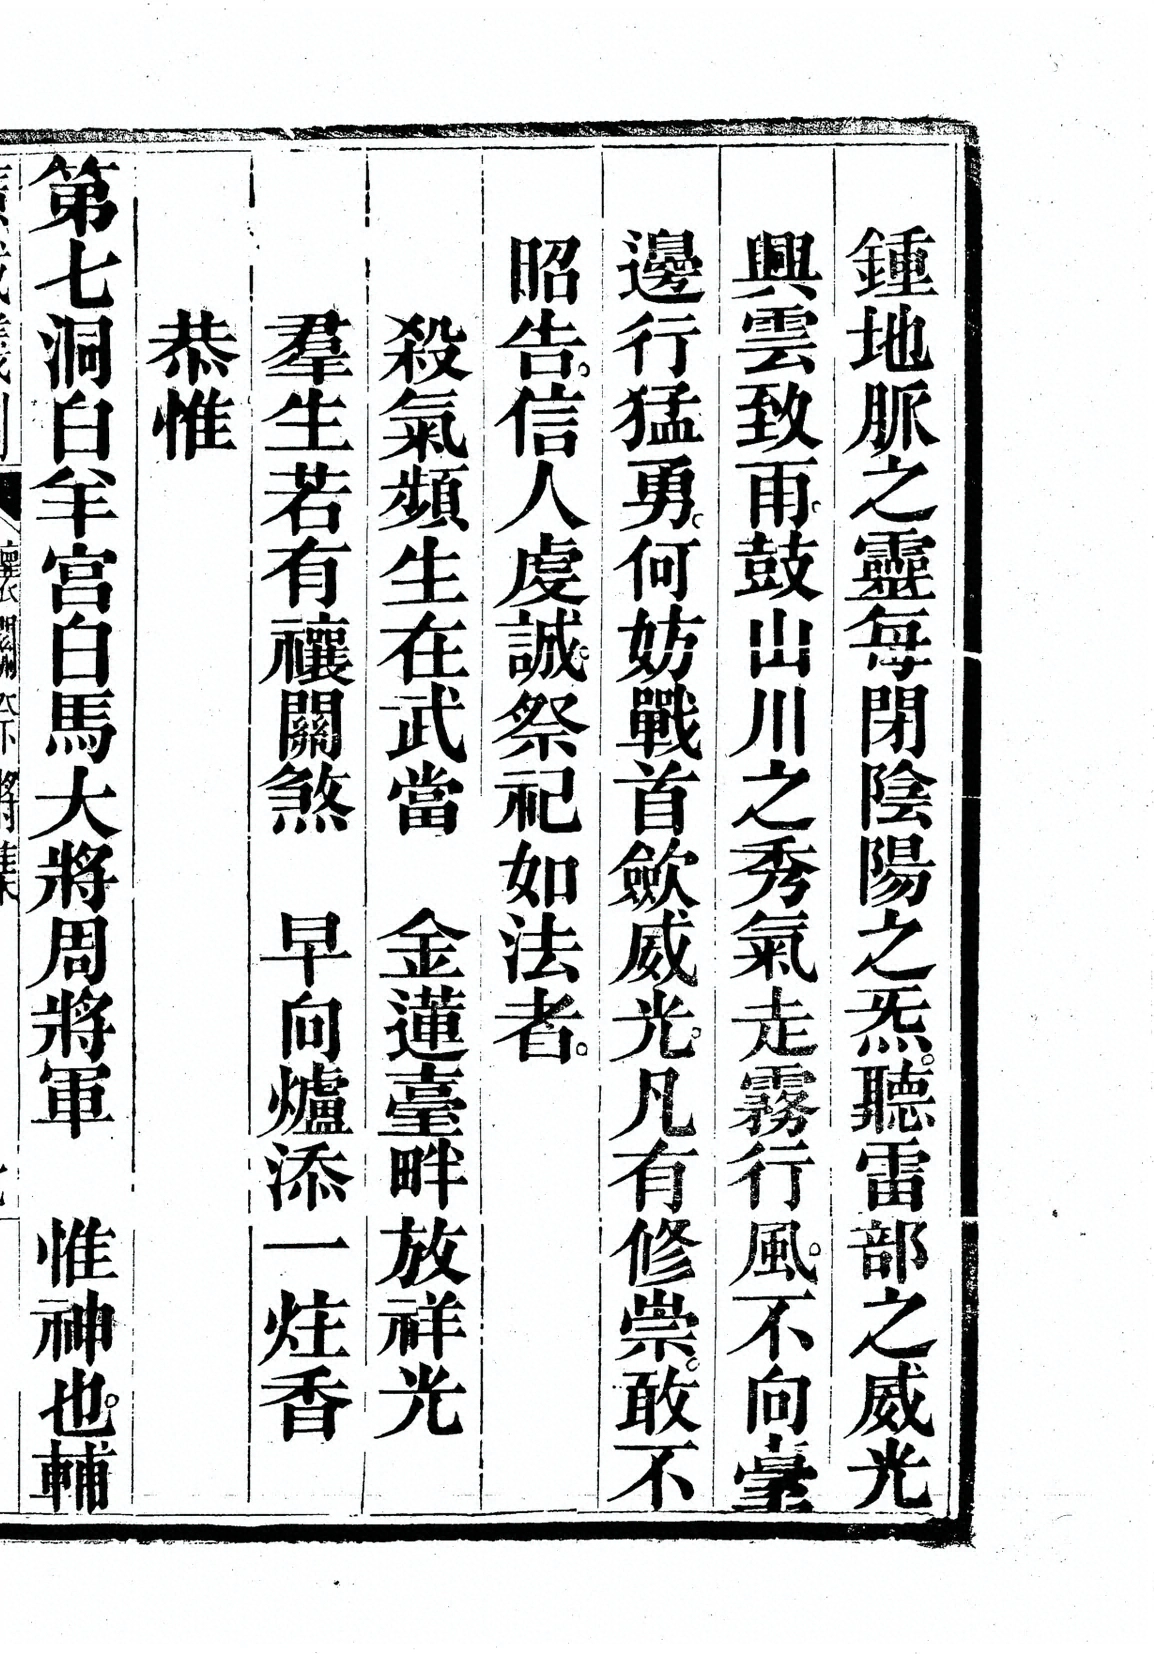 鍾地脈之靈每閉陰陽之炁。聽雷部之威光
興雲致雨。鼓山川之秀氣走霧行風。不向臺
邊行猛勇。何妨戰首歛威光。凡有修崇。敢不
昭告。信人虔誠。祭祀如法者。
殺氣頻生在武當　金蓮臺畔放祥光
羣生若有禳關煞　早向爐添一炷香
恭惟
第七洞白羊宮白馬大將周將軍　惟神也。輔